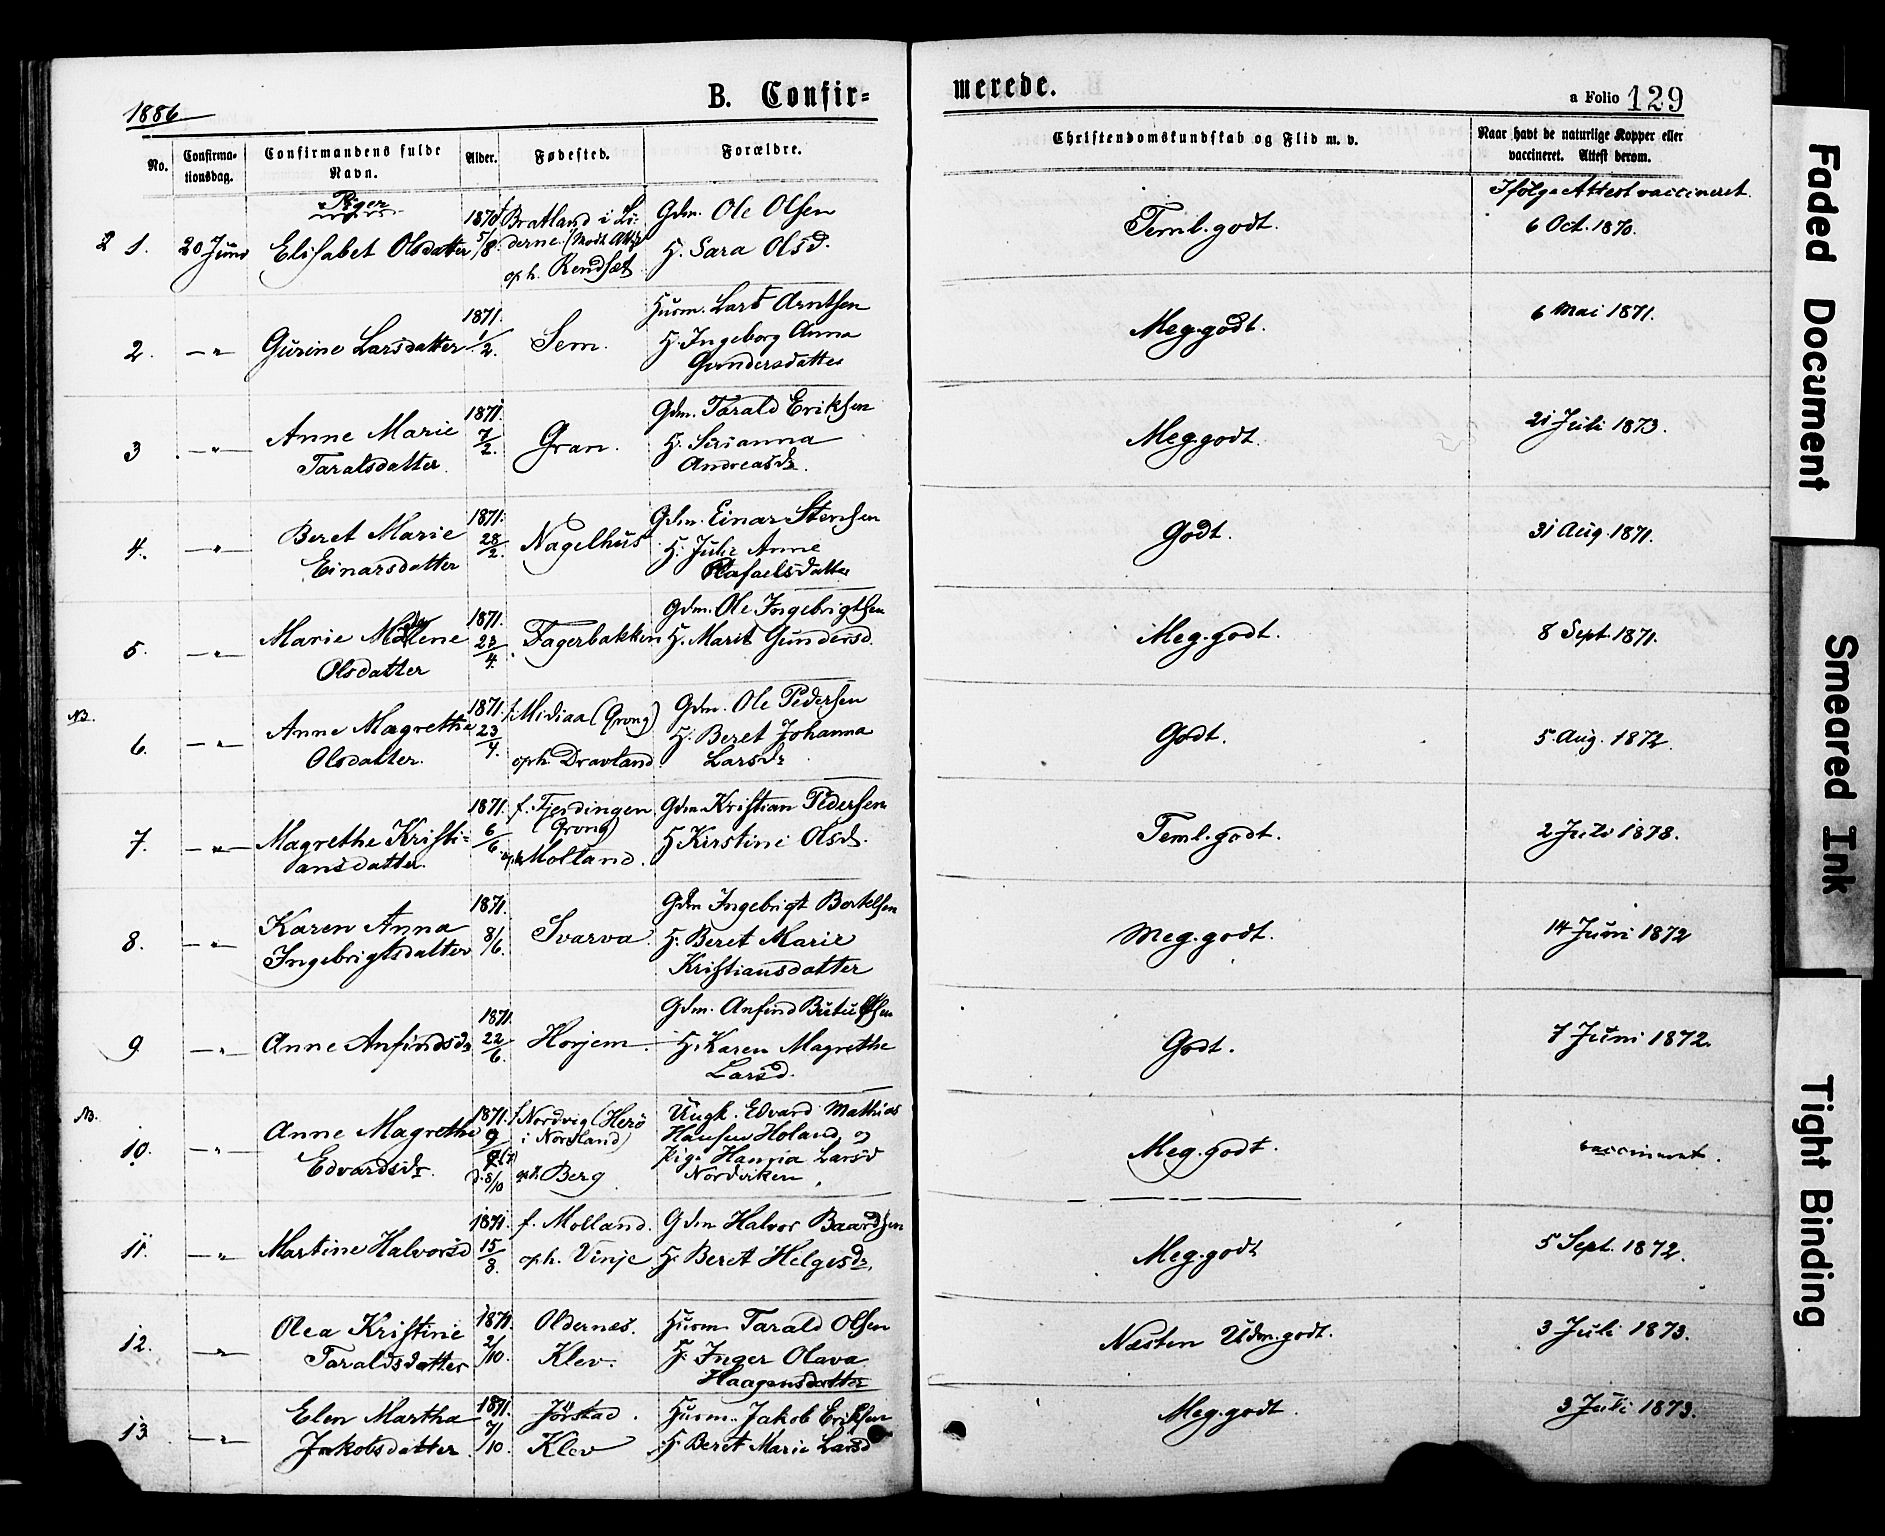 1886
B. Confir-
merede.
a Folio 129
No.
Confirma-
tionsdag.
Confirmandens fulde
Navn.
Alder.
Fødested.
Forældre.
Christendomskundskab og Flid m. v.
Naar havt de naturlige Kopper eller
vaccineret. Attest derom.
Piger
1. 20 Juni Elisabet Olsdatter 1870 5/8
Bratland i
oph. Rendsæt
Gdm. Ole Olsen
H. Sara Olsd.
Teml. godt.
Ifølge Attest vaccineret
6 Oct. 1870.
2. —"— Gurine Larsdatter 1871. 1/2. Sem.
Husm. Lars Arntsen
H. Ingeborg Anna
Gundersdatter
Meg. godt.
6 Mai 1871.
3 —"— Anne Marie
Taraldsdatter 1871. 7/2. Gran.
Gdm. Tarald Eriksen
H. Sirianna
Andreasdr.
Meg. godt.
21 Juli 1873.
4. —"— Beret Marie
Einarsdatter 1871. 28/2. Nagelhus
Gdm. Einar Stensen
H. Julie Anne
Rafaelsdatter
Godt.
31 Aug. 1871.
5. —"— Marie
Olsdatter 1871. 23/4. Fagerbakken
Gdm. Ole Ingebrigtsen
H. Marit Gundersd.
Meg. godt.
8 Sept. 1871.
NB.
6. —"— Anne Magrethe
Olsdatter. 1871. 23/4.
f. Midiaa (Grong)
oph. Dravland
Gdm. Ole Pedersen
H. Beret Johanna
Larsdr
Godt.
5 Aug. 1872.
7. —"— Magrethe Kristi-
ansdatter. 1871. 6/6.
f. Fjerdingen
(Grong)
oph. Molland.
Gdm. Kristian Pedersen
H. Kirstine Olsd.
Teml. godt.
2 Juli 1878.
8. —"— Karen Anna
Ingebrigtsdatter 1871. 8/6. Svarva.
Gdm Ingebrigt Bertelsen
H. Beret Marie
Kristiansdatter
Meg. godt.
14 Juni 1872
9 —"— Anne Anfindsdr 1871. 22/6. Horjem.
Gdm. Anfind
H. Karen Magrethe
Larsd.
Godt.
7 Juni 1872.
NB.
10. —"— Anne Magrethe
Edvardsdr. 1871. 9/9
d. 8/10
f. Nordvig (Herø
i Nordland)
oph. Berg
Ungk. Edvard Mathias
Hansen Holand og
Pige Hanna Larsd
Nordviken.
Meg. godt.
vaccineret.
11. —"— Martine Halvorsd 1871. 15/8.
f. Molland.
oph. Vinje
Gdm Halvor Baardsen
H. Beret Helgesdr.
Meg. godt
5 Sept. 1872.
12. —"— Olea Kristine
Taraldsdatter 1871. 2/10.
Oldernes.
Klev.
Husm. Tarald Olsen
H. Inger Olava
Haagensdatter
Næsten Udm. godt.
3 Juli 1873.
13 —"— Elen Martha
Jakobsdatter 1871. 7/10.
Jørstad.
Klev
Husm. Jakob Eriksen
H. Beret Marie Larsd
Meg. godt.
3 Juli 1873.
Faded Document
Smeared Ink
Tight Binding